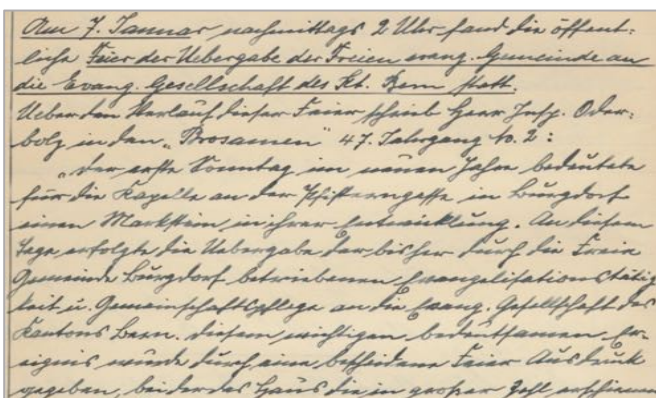 Am 7. Januar nachmittags 2 Uhr fand die öffent-
liche Feier der Uebergabe der Freien evang. Gemeinde an
die Evang. Gesellschaft des Kt. Bern statt.
Ueber den Verlauf dieser Feier schrieb Herr Insp. Oder-
bolz in den „Brosamen" 47. Jahrgang No. 2:
„Der erste Sonntag im neuen Jahre bedeutete
für die Kapelle an der Pfisterngasse in Burgdorf
einen Markstein in ihrer Entwicklung. An diesem
Tage erfolgte die Uebergabe der bisher durch die Freie
Gemeinde Burgdorf betriebenen Evangelisationstätig
keit u. Gemeinschaftspflege an die Evang. Gesellschaft des
Kantons Bern. Diesem wichtigen bedeutsamen Er-
eignis wurde durch eine bescheidene Feier Ausdruck
gegeben, bei der das Haus die in großer Zahl erschienen